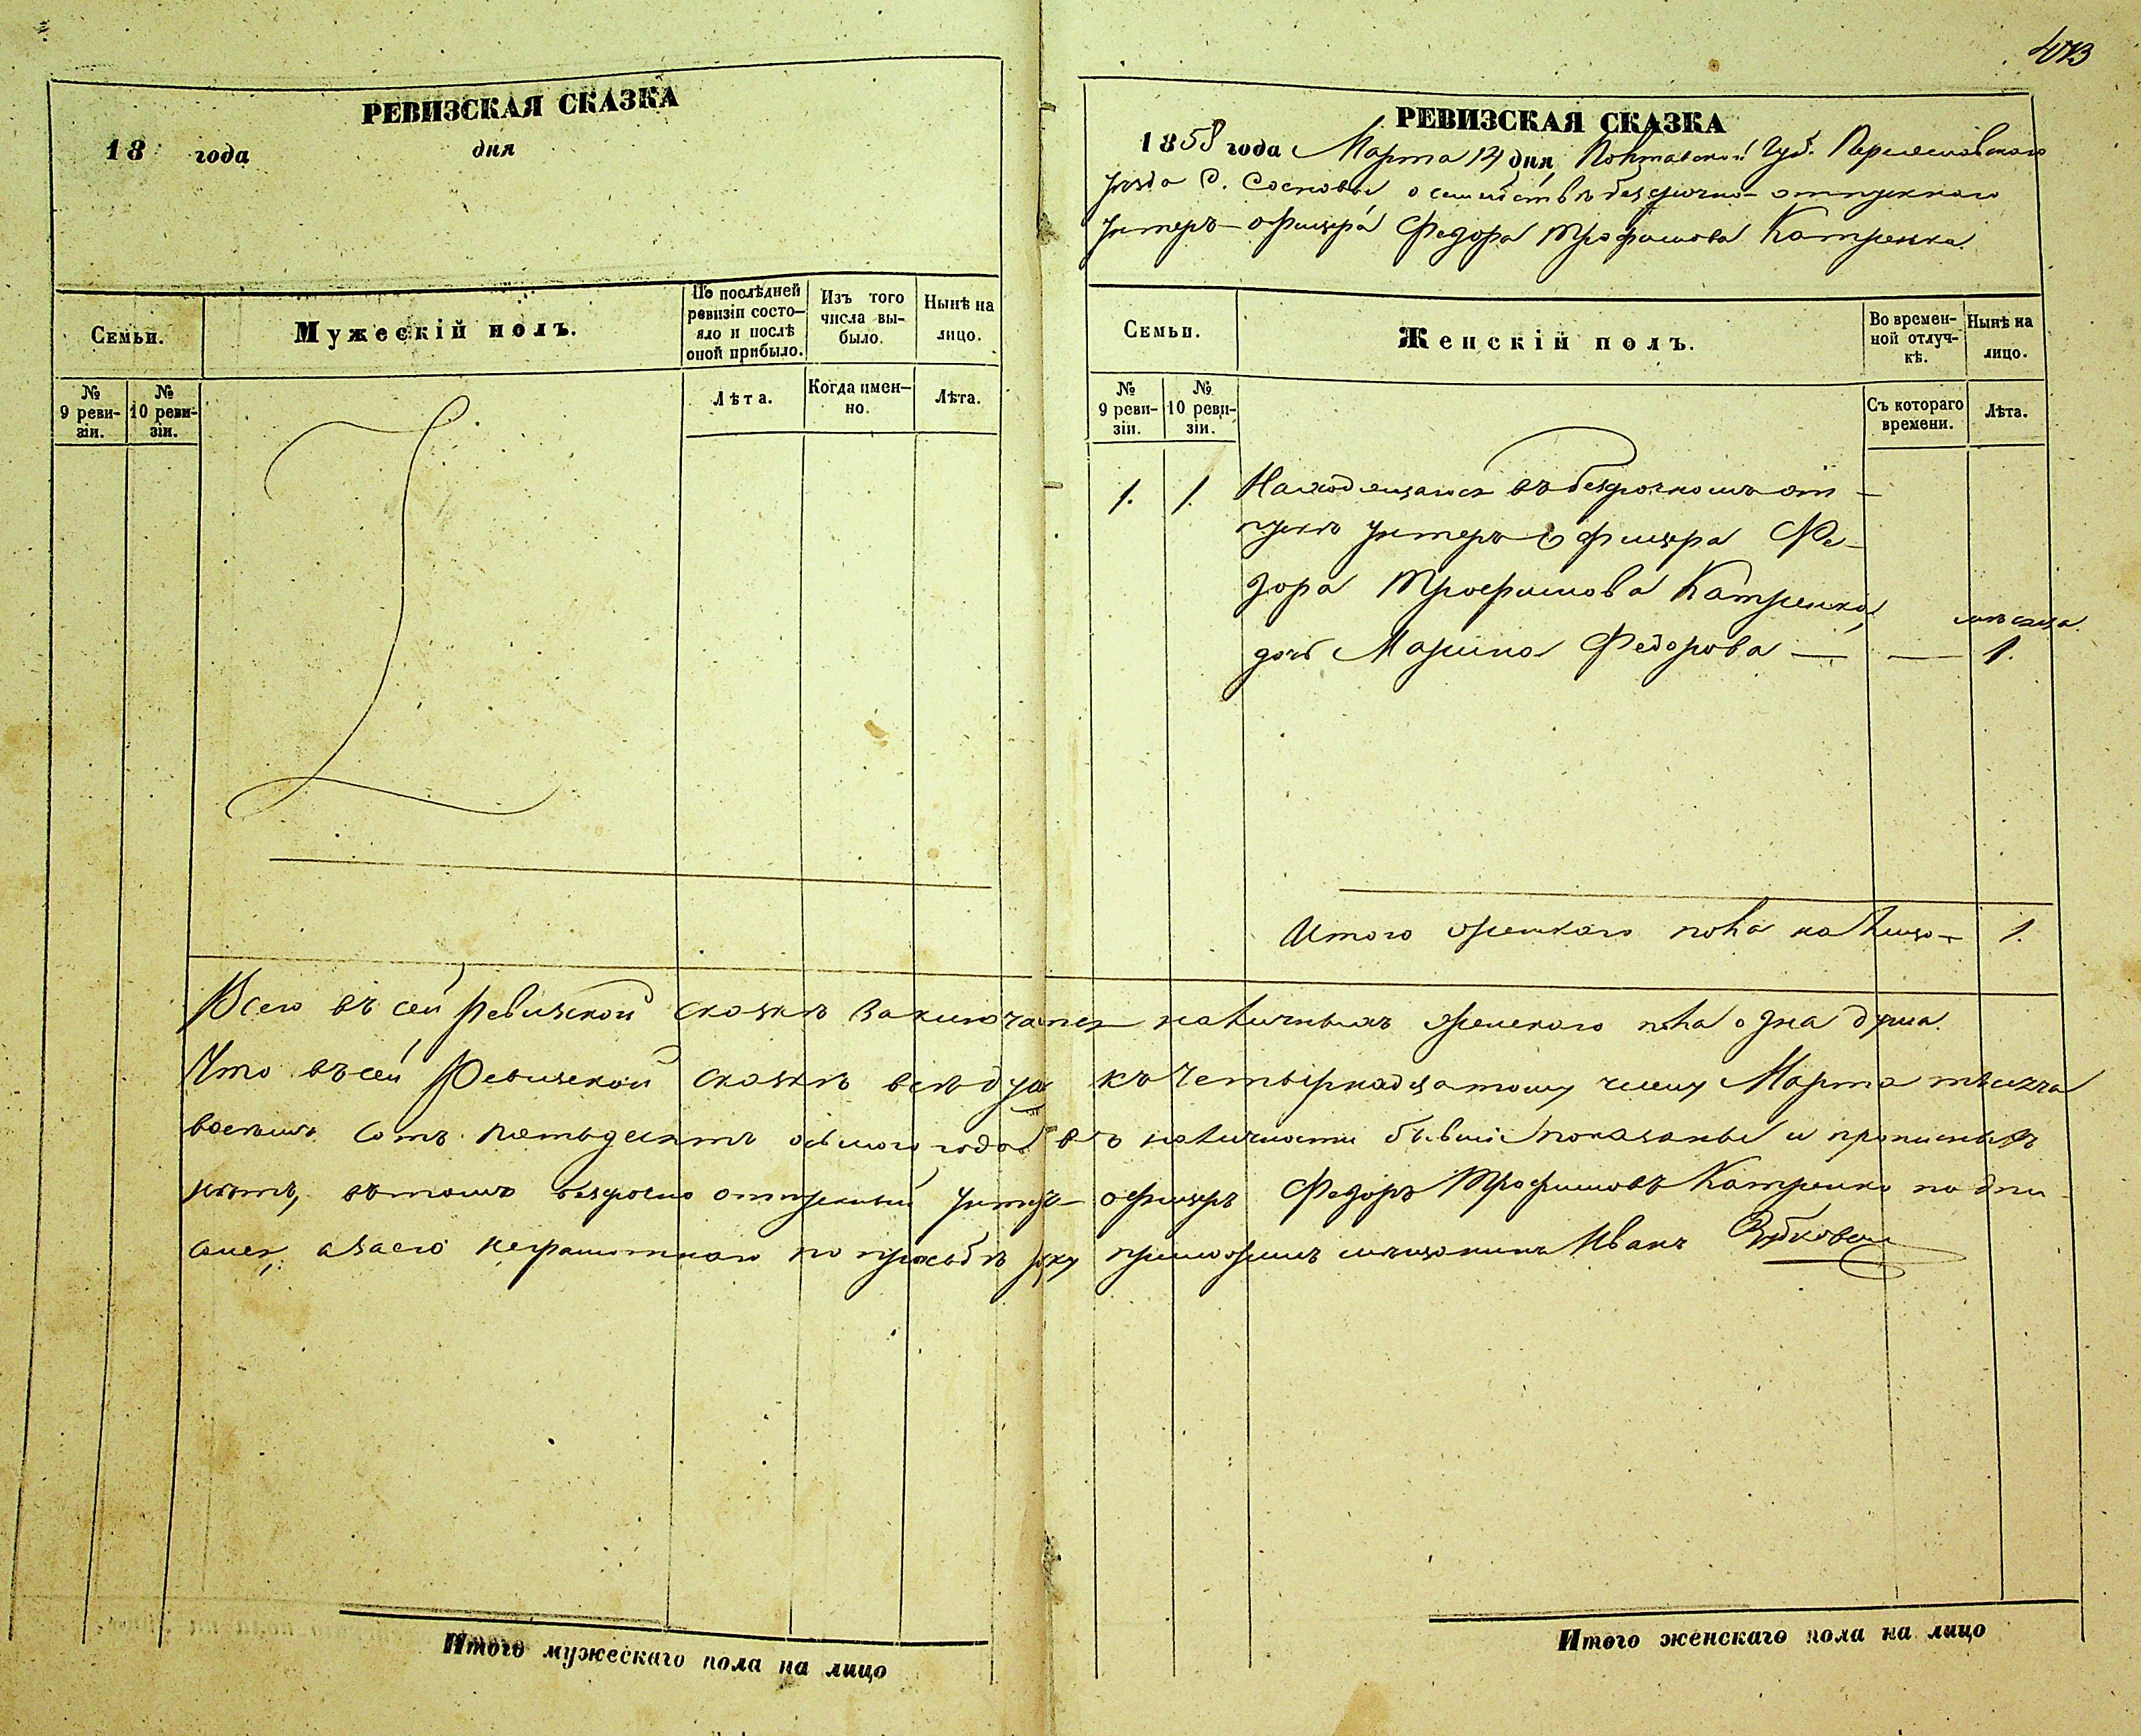 РЕВИЗСКАЯ СКАЗКА
18 года дня
Семьи.
Мужескій полъ.
По послѣдней ревизіи состо-
яло и послѣ оной прибыло.
Изъ того числа вы-
было.
Нынѣ на лицо.
№ 9 реви-
зіи.
№ 10 реви-
зіи.
Лѣта.
Когда имен-
но.
Лѣта.
Итого мужескаго пола на лицо
РЕВИЗСКАЯ СКАЗКА
1858 года Марта 14 дня, Полтавской Губ. Переяславскаго
уезда д. Сосновы о семействѣ безсрочно-отпускнаго
Унтеръ-офицера Федора Трофимова Катренка.
Семьи.
Женскій полъ.
Во времен-
ной отлуч-
кѣ.
Нынѣ на лицо.
№ 9 реви-
зіи.
№ 10 реви-
зіи.
Съ котораго времени.
Лѣта.
1. 1. Находящагося въ безсрочномъ от-
пускѣ Унтеръ Офицера Фе-
дора Трофимова Катренка,
мѣсяца
дочь Марина Федорова — — 1.
Итого женскаго пола на лицо — 1.
Всего въ сей Ревизской сказкѣ заключается наличныхъ женскаго пола одна душа.
Что въ сей Ревизской сказкѣ всѣ души къ Четырнадцатому числу Марта мѣсяца
восемь сотъ пятьдесятъ осьмого года въ наличности бывшіе показаны и прописныхъ
нѣтъ, въ томъ безсрочно отпускный Унтеръ-офицеръ Федоръ Трофимовъ Катренко подпи-
сался, а за его неграмотнаго по просьбѣ руку приложилъ мѣщанинъ Иванъ
Итого женскаго пола на лицо